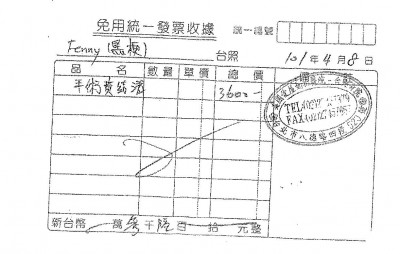 免用統一發票收據 統一編號
Fenny (黑梗) 台照 101年4月8日
品名 數量 單價 總價
手術費結清 3600-
TEL
FAX
台北市八德路四段
新台幣 萬 參 千 陸 百 拾 元整